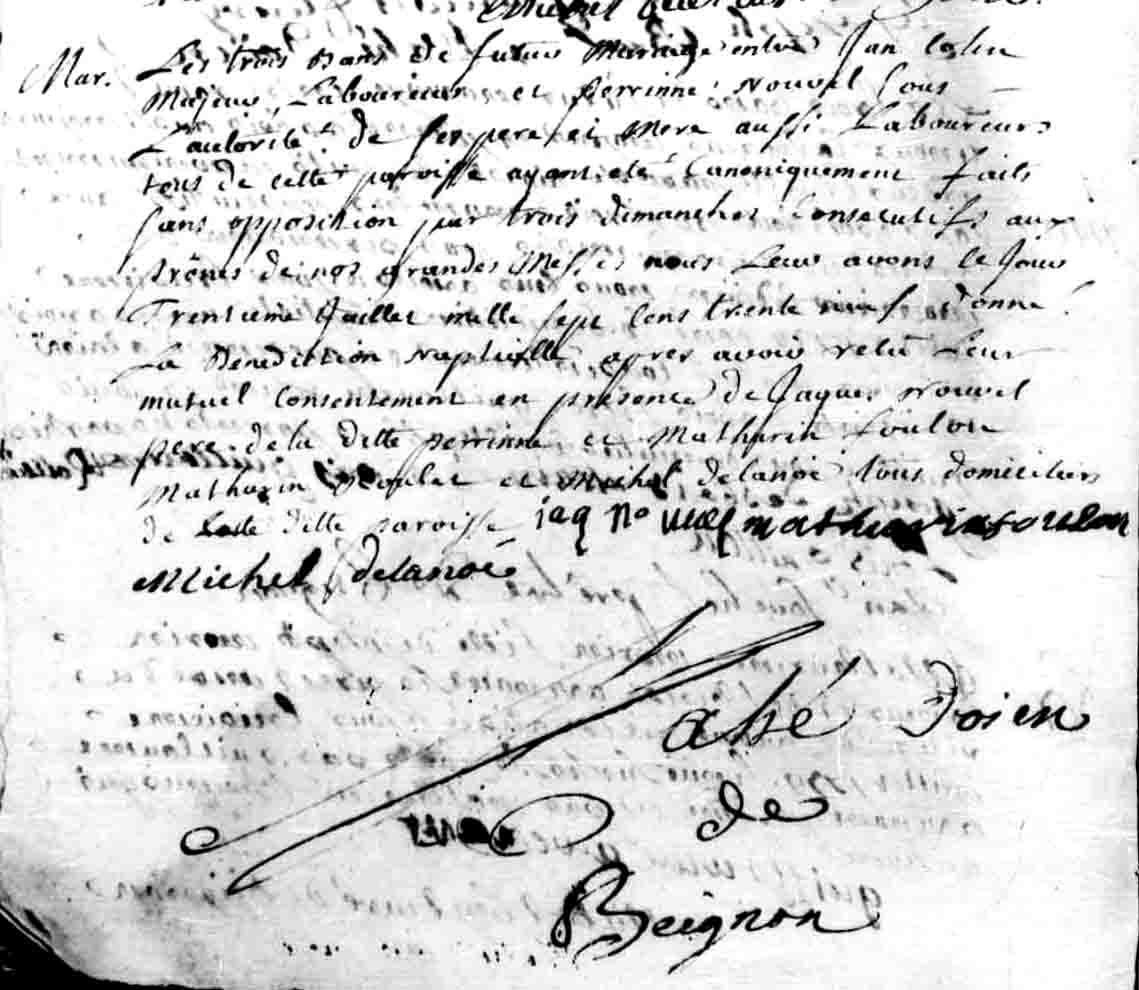 Mar. Les trois bans de futur Mariage entre Jan
Majeur, Laboureur et Perrinne Nouvel sous
L'autorité de ses pere et mere aussi Laboureurs
tous de cette paroisse ayant eté Canoniquement faits
sans opposition par trois dimanches Consecutifs aux
prônes de nos grandes Messes nous Leur avons le Jour
Trentieme Juillet mille sept Cens trente neuf donné
La Benediction Nuptialle apres avoir retû Leur
mutuel Consentement en presence de Jaques Nouvel
pere de la ditte perrinne et Mathurin foulon
Mathurin et Michel delanoë tous domiciliers
de ditte paroisse jaq nouuel mathurin foulon
Michel delanoë
Doien
de
Beignon